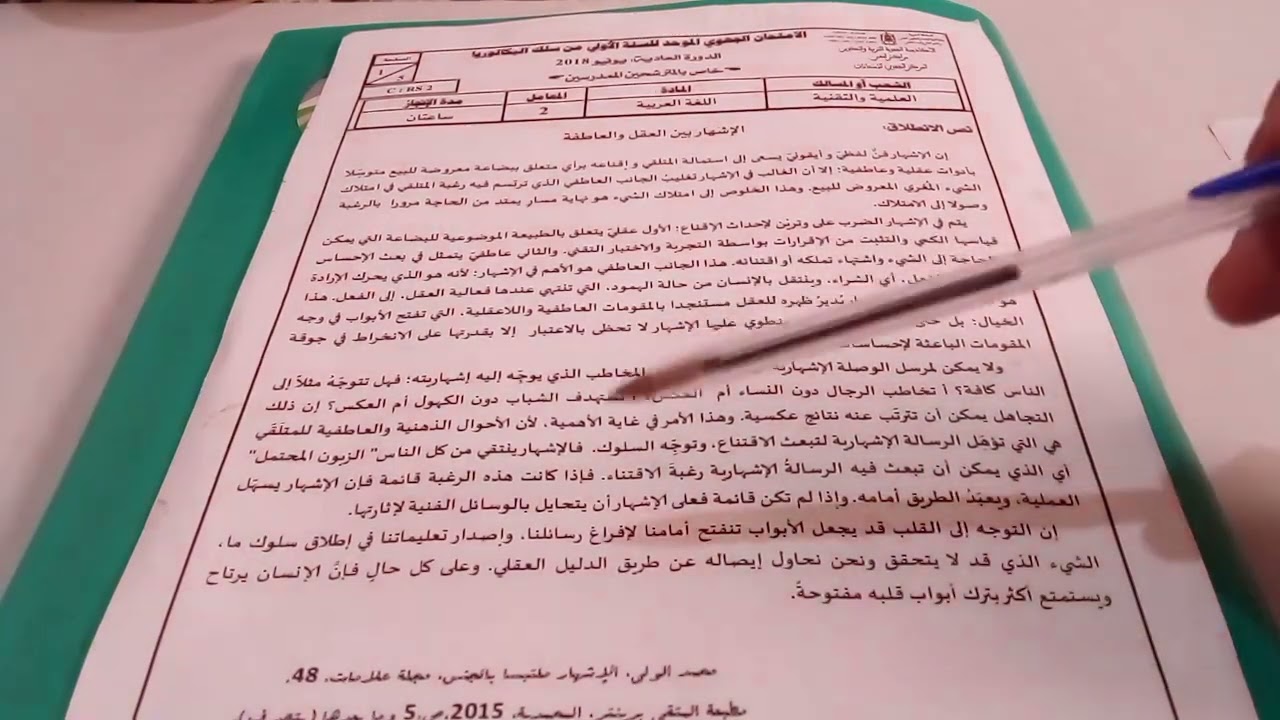 الامتحان الجهوي الموحد للسنة الأولى من سلك البكالوريا
الدورة العادية، يونيو 2018
خاص بالمترشحين الممدرسين
الصفحة
1
5
C : RS 2
الشعب أو المسالك
المادة
المعامل
مدة الإنجاز
العلمية والتقنية
اللغة العربية
2
ساعتان
نص الانطلاق:
الإشهار بين العقل والعاطفة
إن الإشهار فنٌّ لفظيّ و أيقونيّ يسعى إلى استمالة المتلقي و إقناعه برأي متعلق ببضاعة معروضة للبيع متوسّلا
بأدوات عقلية وعاطفية؛ إلا أن الغالب في الإشهار تغليبُ الجانب العاطفي الذي ترتسم فيه رغبة المتلقي في امتلاك
الشيء المُغري المعروض للبيع. وهذا الخلوص إلى امتلاك الشيء هو نهاية مسار يمتد من الحاجة مرورا بالرغبة
وصولا إلى الامتلاك.
يتم في الإشهار الضرب على وتريْن لإحداث الإقناع: الأول عقليّ يتعلق بالطبيعة الموضوعية للبضاعة التي يمكن
قياسها الكمي والتثبت من الإقرارات بواسطة التجربة والاختبار التقني. والثاني عاطفيّ يتمثل في بعث الإحساس
بالحاجة إلى الشيء واشتهاء تملكه أو اقتنائه. هذا الجانب العاطفي هو الأهم في الإشهار؛ لأنه هو الذي يحرك الإرادة
أي الشراء، وينتقل بالإنسان من حالة الهمود، التي تنتهي عندها فعالية العقل، إلى الفعل. هذا
هو يُديرُ ظهره للعقل مستنجدا بالمقومات العاطفية واللاعقلية، التي تفتح الأبواب في وجه
الخيال؛ بل عليها الإشهار لا تحظى بالاعتبار إلا بقدرتها على الانخراط في جوقة
المقومات الباعثة
ولا يمكن لمرسل الوصلة الإشهارية المخاطب الذي يوجّه إليه إشهاريته؛ فهل تتوجّهُ مثلاً إلى
الناس كافة؟ أ تخاطب الرجال دون النساء أم العكس؟ الشباب دون الكهول أم العكس؟ إن ذلك
التجاهل يمكن أن تترتّب عنه نتائج عكسية. وهذا الأمر في غاية الأهمية، لأن الأحوال الذهنية والعاطفية للمتلَقّي
هي التي تؤهّل الرسالة الإشهارية لتبعث الاقتناع، وتوجّه السلوك. فالإشهار ينتقي من كل الناس" الزبون المحتمل"
أي الذي يمكن أن تبعث فيه الرسالةُ الإشهارية رغبةَ الاقتناء. فإذا كانت هذه الرغبة قائمة فإن الإشهار يسهّل
العملية، ويعبّدُ الطريق أمامه. وإذا لم تكن قائمة فعلى الإشهار أن يتحايل بالوسائل الفنية لإثارتها.
إن التوجه إلى القلب قد يجعل الأبواب تنفتح أمامنا لإفراغ رسائلنا، وإصدار تعليماتنا في إطلاق سلوك ما،
الشيء الذي قد لا يتحقق ونحن نحاول إيصاله عن طريق الدليل العقلي. وعلى كل حالٍ فإنّ الإنسان يرتاح
ويستمتع أكثر بترك أبواب قلبه مفتوحةً.
محمد الولي، الإشهار ملتبسا بالجنس، مجلة علامات، 48،
مطبعة المتقي برينتر، المحمدية، 2015، ص، 5 وما بعدها